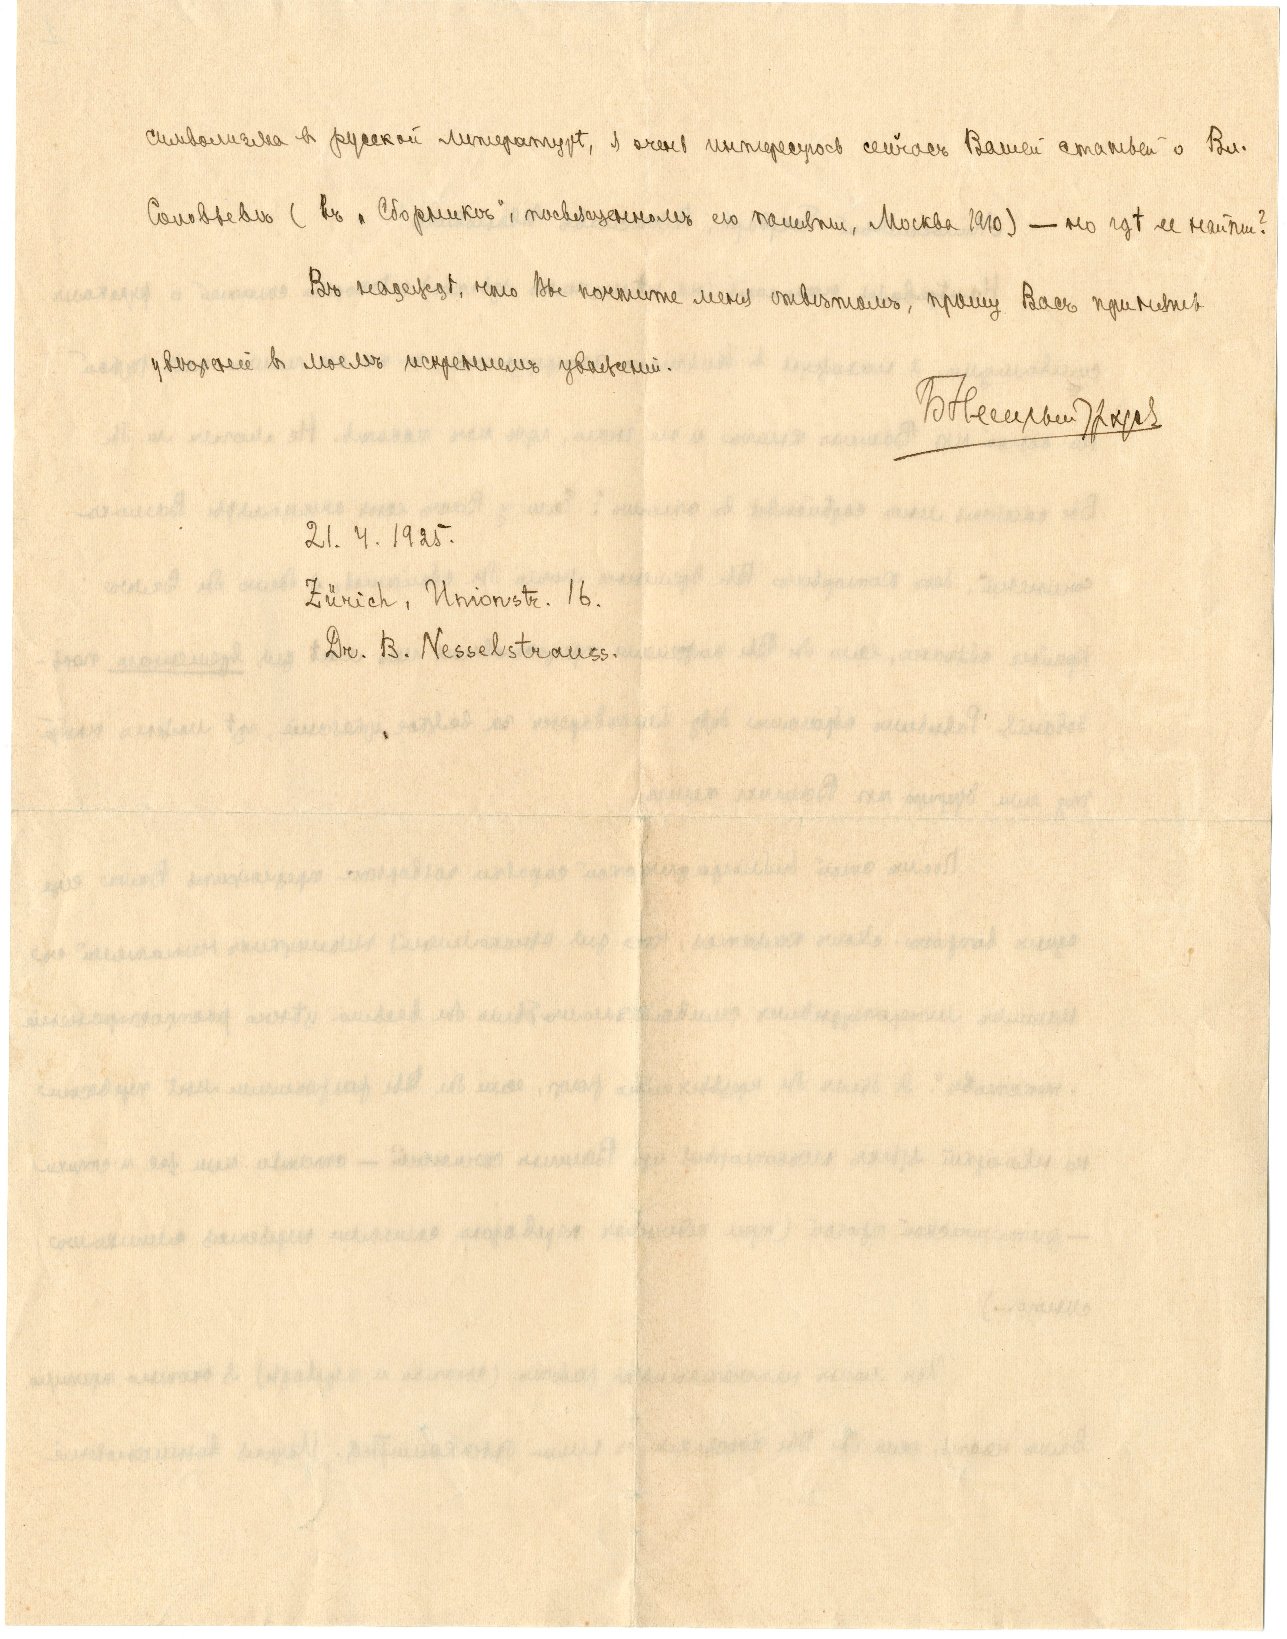 символизма в русской литературѣ, я очень интересуюсь сейчасъ Вашей статьей о Вл.
Соловьевѣ ( въ „Сборникѣ", посвященномъ его памяти, Москва 1910) — но гдѣ ее найти?
Въ надеждѣ, что Вы почтите меня отвѣтомъ, прошу Васъ принять
увѣреніе в моемъ искреннемъ уваженіи.
21. 4. 1925.
Zürich, Unionstr. 16.
Dr. B. Nesselstrauss.